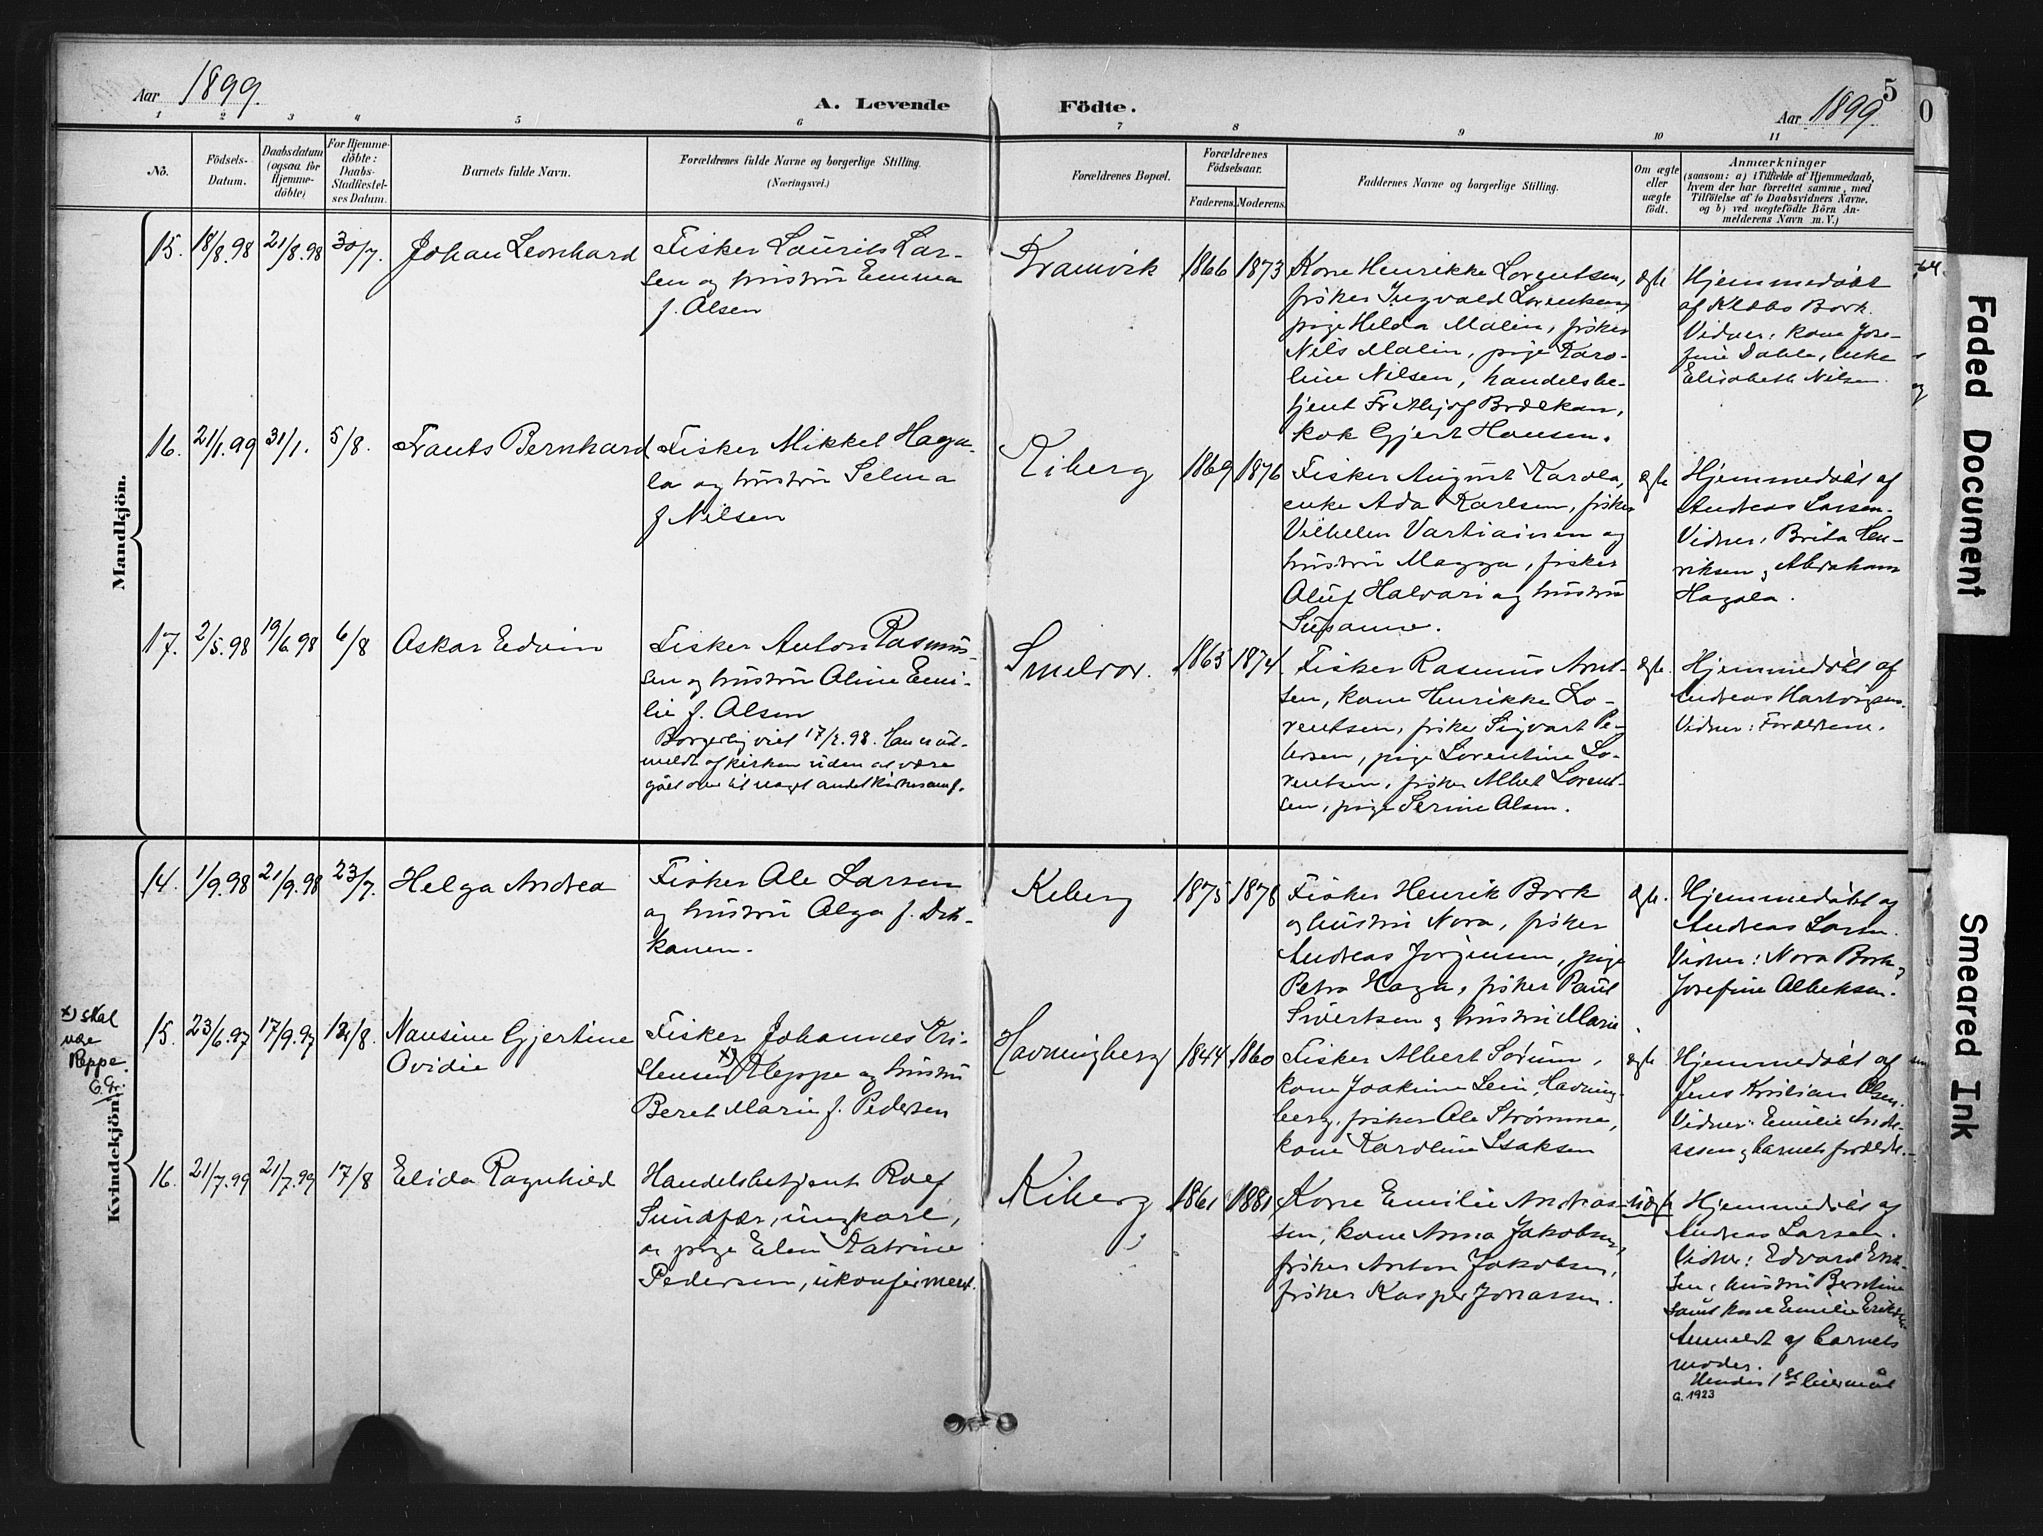 Aar 1899.
A. Levende
Födte.
Aar 1899.
5
1 2 3 4 5 6 7 8 9 10 11
No.
Födsels-
Datum.
Daabsdatum
(ogsaa for
Hjemme-
döbte)
For Hjemme-
döbte:
Daabs-
Stadfæstel-
ses Datum.
Barnets fulde Navn.
Forældrenes fulde Navne og borgerlige Stilling.
(Næringsvei.)
Forældrenes Bopæl.
Forældrenes
Födselsaar.
Faderens.
Moderens.
Faddernes Navne og borgerlige Stilling.
Om ægte
eller
uægte
födt.
Anmærkninger
(saasom: a) i Tilfælde af Hjemmedaab,
hvem der har forrettet samme, med
Tilföielse af to Daabsvidners Navne.
og b) ved uægtefödte Börn An-
melderens Navn m. V.)
Mandkjön.
15. 18/8.98 21/8.98 30/7. Johan Leonhard
Fisker Laurits Lar-
sen og hustru Emma
f. Olsen
Kramvik 1866 1873
Kone Henrikke Lorentsen,
fisker Ingvald Lorentsen,
pige Helda Malin, fisker
Nils Malin, pige Karo-
line Nilsen, handelsbe-
tjent Fritthjof Brækkan,
kok Gjert Hansen.
ægte
Hjemmedøbt
af Klebo Bork.
Vidner: kone Jose-
fine Dahle, enke
Elisabeth Nilsen.
16. 21/1.99 31/1. 5/8. Frants Bernhard
Fisker Mikkel Haga-
la og hustru Selma
f Nilsen
Kiberg 1869 1876
Fisker August Karola,
enke Ada Karlsen, fisker
Vilhelm Vartiainen og
hustru Magga, fisker
Oluf Halvari og hustru
Susanne.
ægte
Hjemmedøbt af
Andreas Larsen.
Vidner: Brita Hen-
riksen, Abraham
Hagala.
17. 2/5.98 19/6.98 6/8 Oskar Edvin
Fisker Anton Rasmus-
sen og hustru Oline Emi-
lie f. Olsen
Borgerlig viet 17/2.98. Han er ud-
meldt af kirken uden at være
gået over til noget andet kirkesamf.
Smelror. 1865 1874.
Fisker Rasmus Arnt-
sen, kone Henrikke Lo-
rentsen, fisker Sigvart Pe-
dersen, pige Lorentine Lo-
rentsen, fisker Albert Lorent-
sen, pige Serine Olsen.
ægte.
Hjemmedøbt af
Andreas Hartvigsen.
Vidner: Forældrene.
Kvindekjön.
14. 1/9.98 21/9.98 23/7. Helga Andrea
Fisker Ole Larsen
og hustru Olga f. Dik-
kanen.
Kiberg 1875 1878
Fisker Henrik Bork
og hustru Nora, fisker
Andreas Jørgensen, pige
Petra Haga, fisker Paul
Sivertsen og hustru Marie
ægte.
Hjemmedøbt af
Andreas Larsen.
Vidner: Nora Bork,
Josefine Albeksen.
x) skal
være
Reppe.
15. 23/6.97 17/9.97 12/8. Nansine Gjertine
Ovidie
Fisker Johannes Kri-
stensen x) Kleppe og hustru
Beret Marie f. Pedersen
Havningberg 1844 1860
Fisker Albert Sørum,
kone Joakime Lein, Havning-
berg, fisker Ole Strømme,
kone Karoline Isaksen
ægte
Hjemmedøbt af
Jens Kristian Olsen.
Vidner: Emilie Andre-
assen, barnets forældre.
16. 21/7.99 21/7.99 17/8 Elida Ragnhild
Handelsbetjent Rolf
Sundfær, ungkarl,
og pige Elen Katrine
Pedersen, ukonfirmert.
Kiberg 1861 1881
Kone Emilie Andreas-
sen, kone Anna Jakobsen,
fisker Anton Jakobsen,
fisker Kasper Jonassen.
uægte
Hjemmedøbt af
Andreas Larsen.
Vidner: Edvard Erik-
sen, hustru Berntine
samt kone Emilie Eriksen
Anmeldt af barnets
moder.
Hendes 1ste leiermål
G. 1923
Faded Document
Smeared Ink